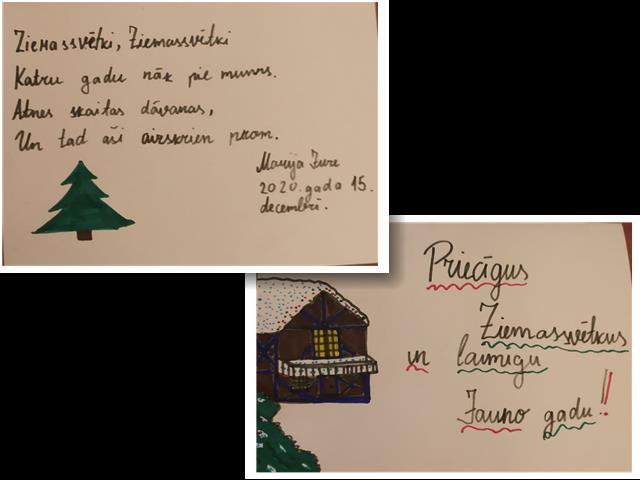 Ziemassvētki, Ziemassvētki
Katru gadu nāk pie mums.
Atnes skaitas dāvanas,
Un tad aši aizskrien prom.
Marija Jure
2020. gada 15.
decembrī.
Priecīgus
Ziemassvētkus
un laimīgu
Jauno gadu!!